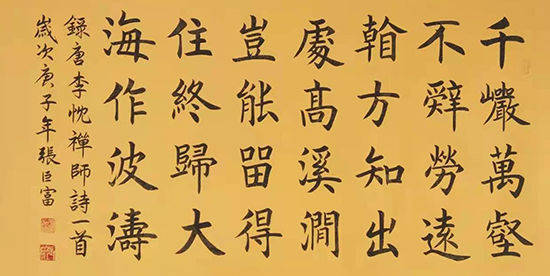 千巗萬壑
不辤勞遠
看方知出
處高溪澗
豈能留得
住終歸大
海作波濤
錄唐李忱禪師詩一首
歲次庚子年張巨富